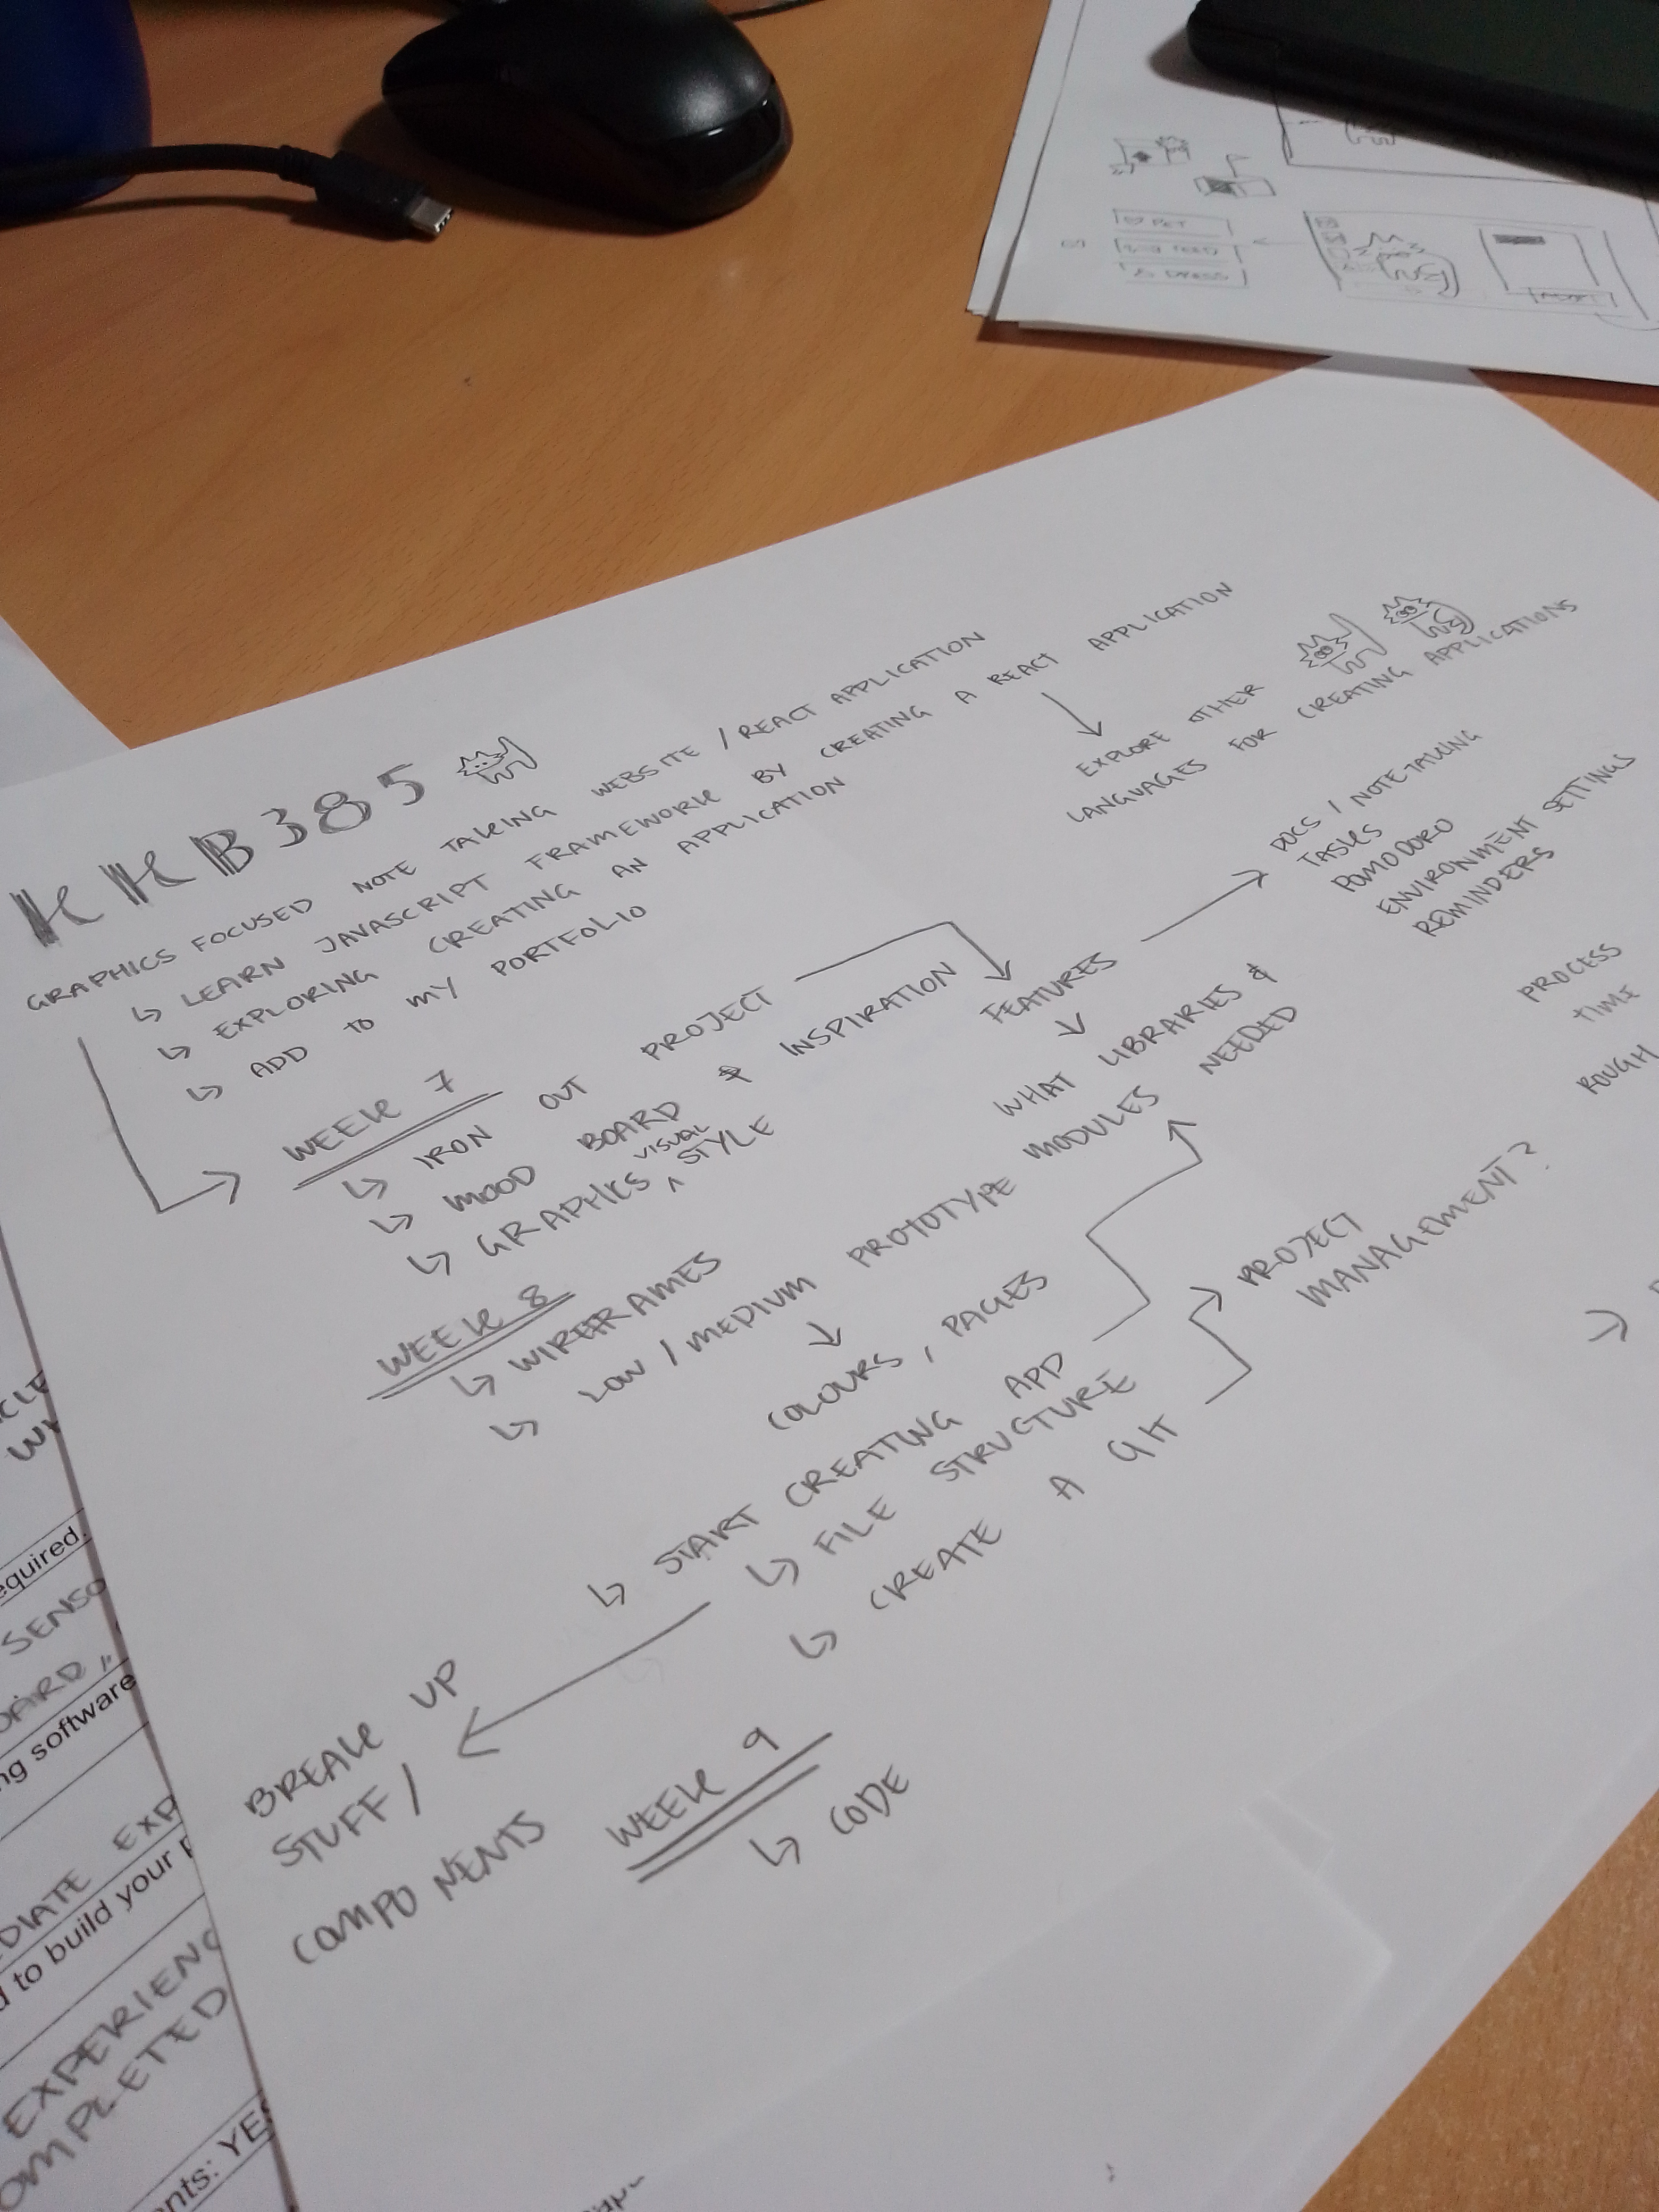 PET
FEED
DRESS
KKB385
GRAPHICS FOCUSED NOTE TAKING WEBSITE / REACT APPLICATION
↳ LEARN JAVASCRIPT FRAMEWORK BY CREATING A REACT APPLICATION
↳ EXPLORING CREATING AN APPLICATION
↳ ADD TO MY PORTFOLIO
EXPLORE OTHER
LANGUAGES FOR CREATING APPLICATIONS
WEEK 7
↳ IRON OUT PROJECT
↳ MOOD BOARD & INSPIRATION
↳ GRAPHICS VISUAL STYLE
FEATURES →
DOCS / NOTETAKING
TASKS
POMODORO
ENVIRONMENT SETTINGS
REMINDERS
WHAT LIBRARIES &
MODULES NEEDED
PROCESS
TIME
ROUGH
WEEK 8
↳ WIREFRAMES
↳ LOW / MEDIUM PROTOTYPE
COLOURS, PAGES
↳ START CREATING APP
↳ FILE STRUCTURE
↳ CREATE A GIT
PROJECT
MANAGEMENT?
BREAK UP
STUFF /
COMPONENTS
WEEK 9
↳ CODE
equired.
SENSO
OARD,,
ng software
DIATE EXP
d to build your p
EXPERIENC
OMPLETED
nts: YES